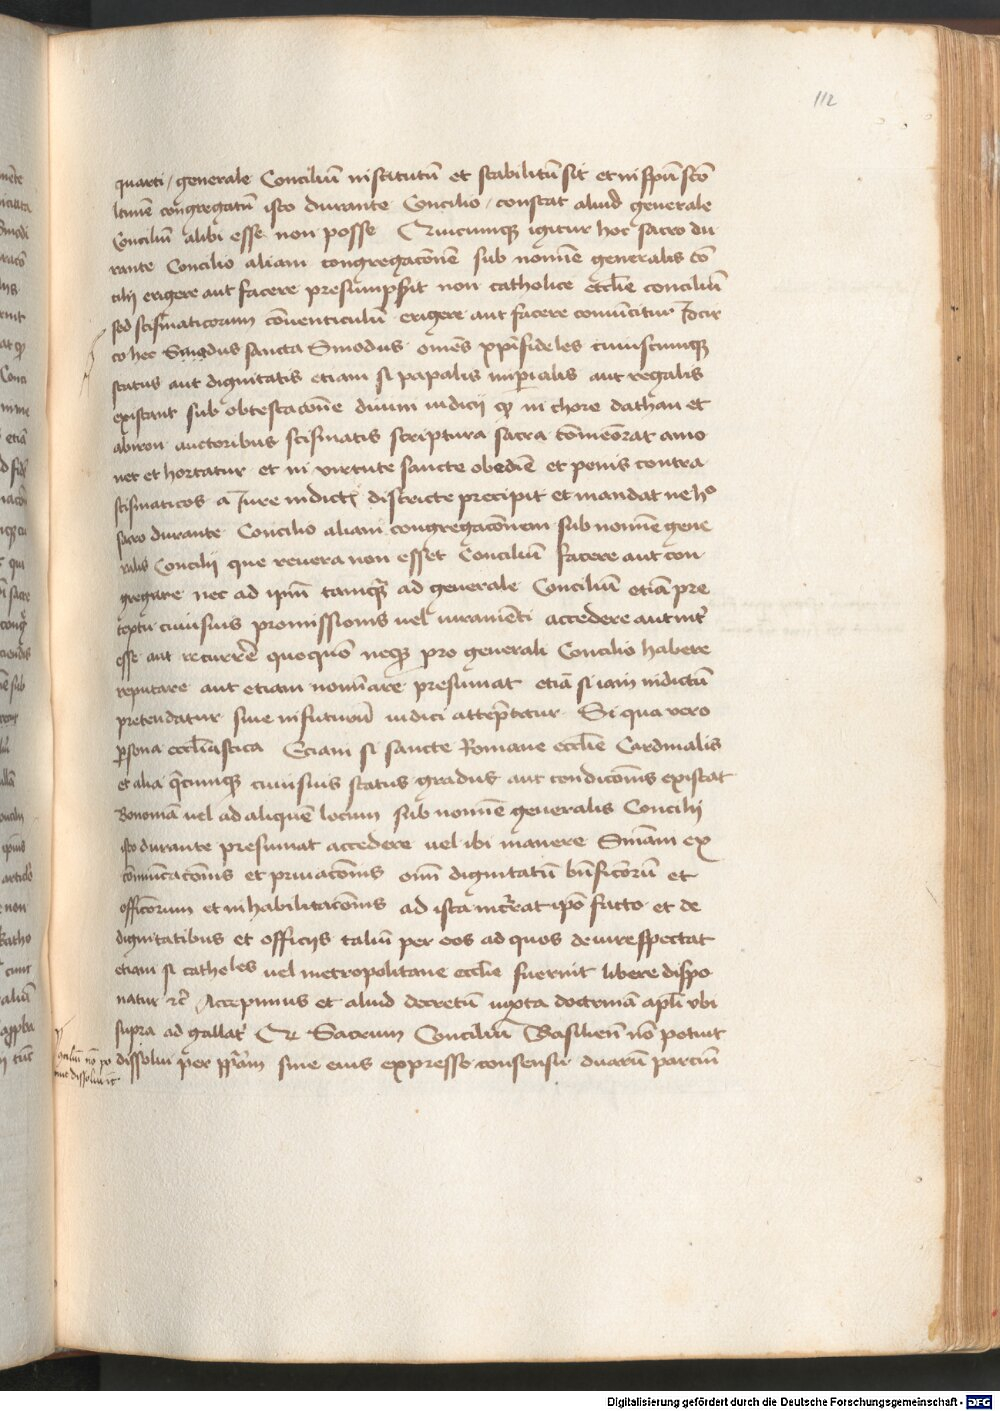 112
quarti / generale Conciliū institutū et stabilitū sit et in spū scō
ltimē congregatū isto durante Concilio / constat aliud generale
Conciliū alibi esse non posse Quicumqȝ igitur hoc sacro du
rante Concilio aliam congregacōnē sub nomīe generalis cō
cilii erigere aut facere presumpsit non catholice ecclīe conciliū
sed scismaticorum cōventiculū erigere aut facere convīcitur Idcir
co hec Sinodus sancta Sinodus omēs xpīfideles cuiuscumqȝ
status aut dignitatis etiam si papalis imperialis aut regalis
existant sub obtestacōne divini iudicii qȝ in chore dathan et
abiron auctoribus scismatis scriptura sacra cōmeōrat amo
net et hortatur et in virtute sancte obediē et penis contra
scismaticos a Iure indictꝭ districte precipit et mandat ne hᵒ
sacro durante Concilio aliam congregacōnem sub nomīe gene
ralis Concilii que revera non esset Conciliū facere aut con
gregare nec ad ipm̄ tamqȝ ad generale Conciliū etiā pre
textu cuiusvis promissionis vel iuramēti accedere aut int̄
esse aut recurrē quoquō neqȝ pro generali Concilio habere
reputare aut etiam nomīare presumat etiā si iam indictū
pretendatur sive in futurū indici attēptetur Si qua vero
persona ecclīastica Etiam si sancte Romane ecclīe Cardinalis
et alia qcumqȝ cuiusvis status gradus aut condicōnis existat
Bononiā vel ad aliquē locum sub nomīe generalis Concilii
isto durante presumat accedere vel ibi manere Sniam ex
cōmūicacōnis et privacōnis omī dignitatū bn̄ficiorū et
officiorum et inhabilitacōnis ad ista incᵉrrat ipō facto et de
dignitatibus et officiis taliū per eos ad quos de iure spectat
etiam si cathēles vel metropolitane ecclīe fuerint libere dispo
natur ꝛc̄ Accepimus et aliud decretū iuxta doctrinā apli ubi
supra ad gallat̄ Qꝛ Sacrum Conciliū Basilien̄ nō potuit
dissolui per ppam sine eius expresso consensu duarū parciū
ꝯciliū nō po
tuit dissolui ꝛc̄
Digitalisierung gefördert durch die Deutsche Forschungsgemeinschaft - DFG